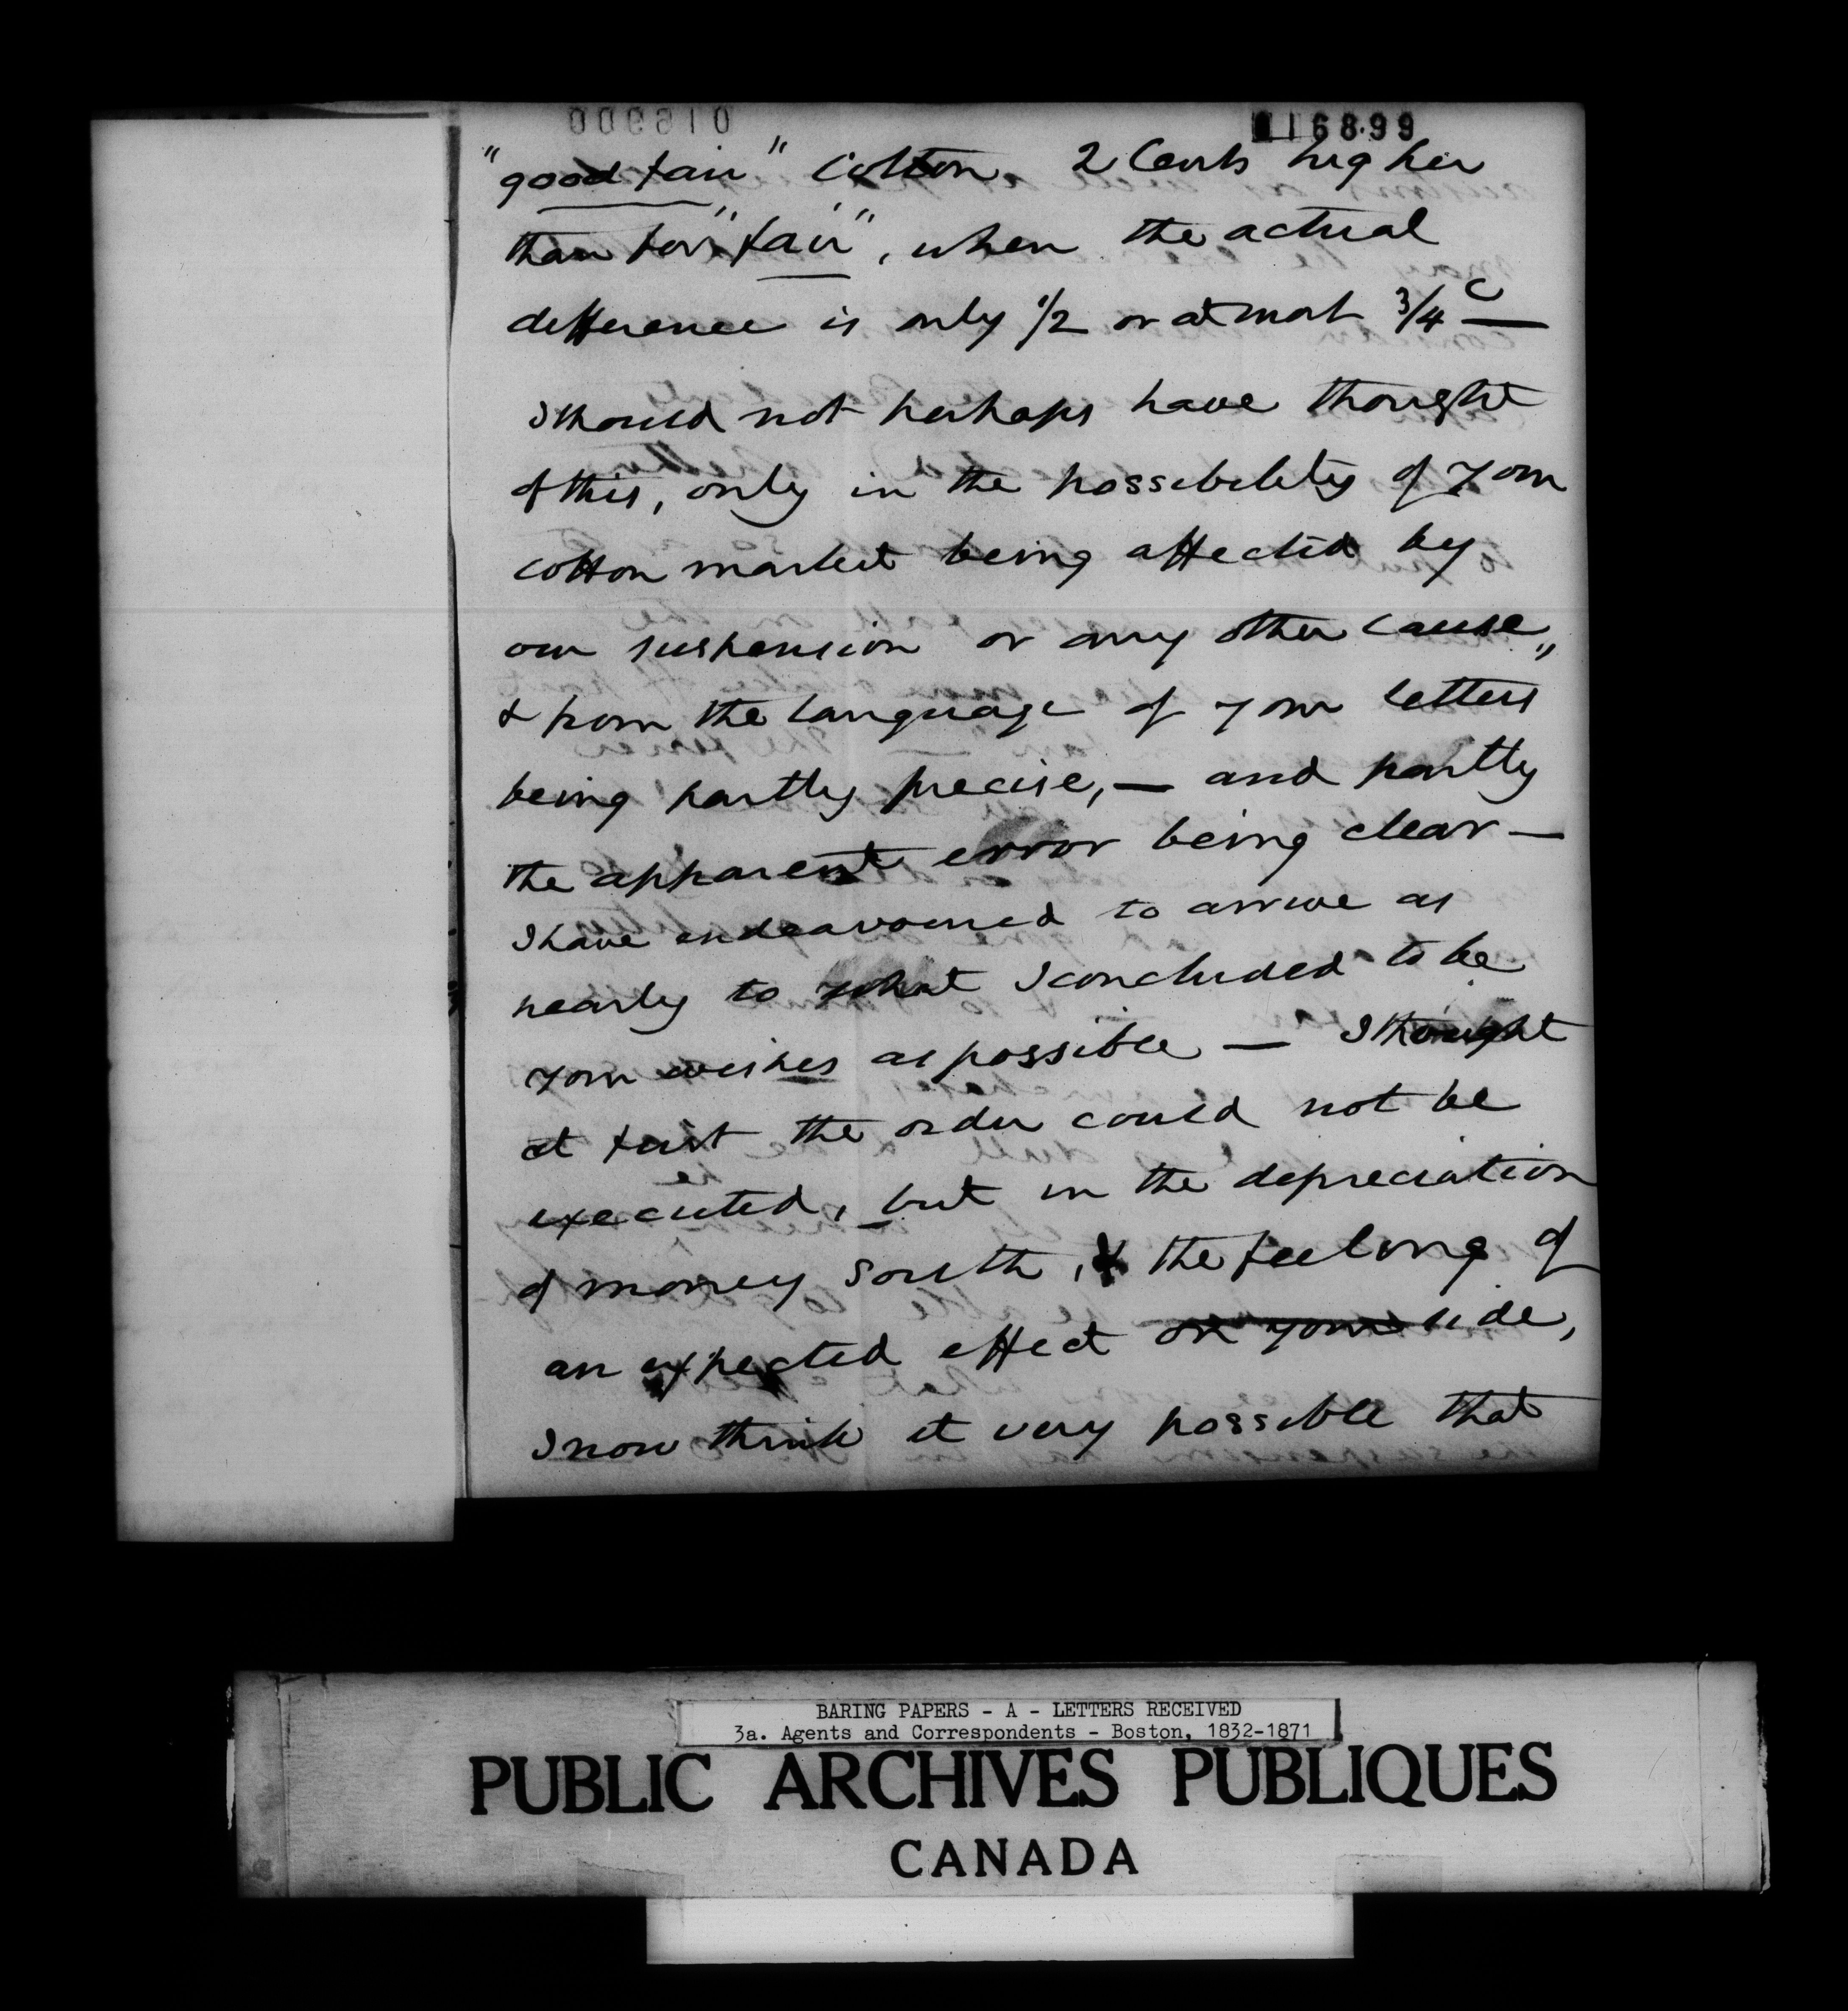 016899
"good fair" Cotton 2 Cents higher
than for "fair", when the actual
difference is only 1/2 or at most 3/4 c
I should not perhaps have thought
of this, only in the possibility of your
cotton market being affected by
our suspension or any other cause,,
& from the language of your letters
being partly precise, — and partly
the apparent error being clear —
I have endeavoured to arrive as
nearly to what I concluded to be
your wishes as possible — I thought
at first the order could not be
executed, but in the depreciation
of money South, & the feeling of
an expected effect on your side,
I now think it very possible that
BARING PAPERS - A - LETTERS RECEIVED
3a. Agents and Correspondents - Boston, 1832-1871
PUBLIC ARCHIVES PUBLIQUES
CANADA